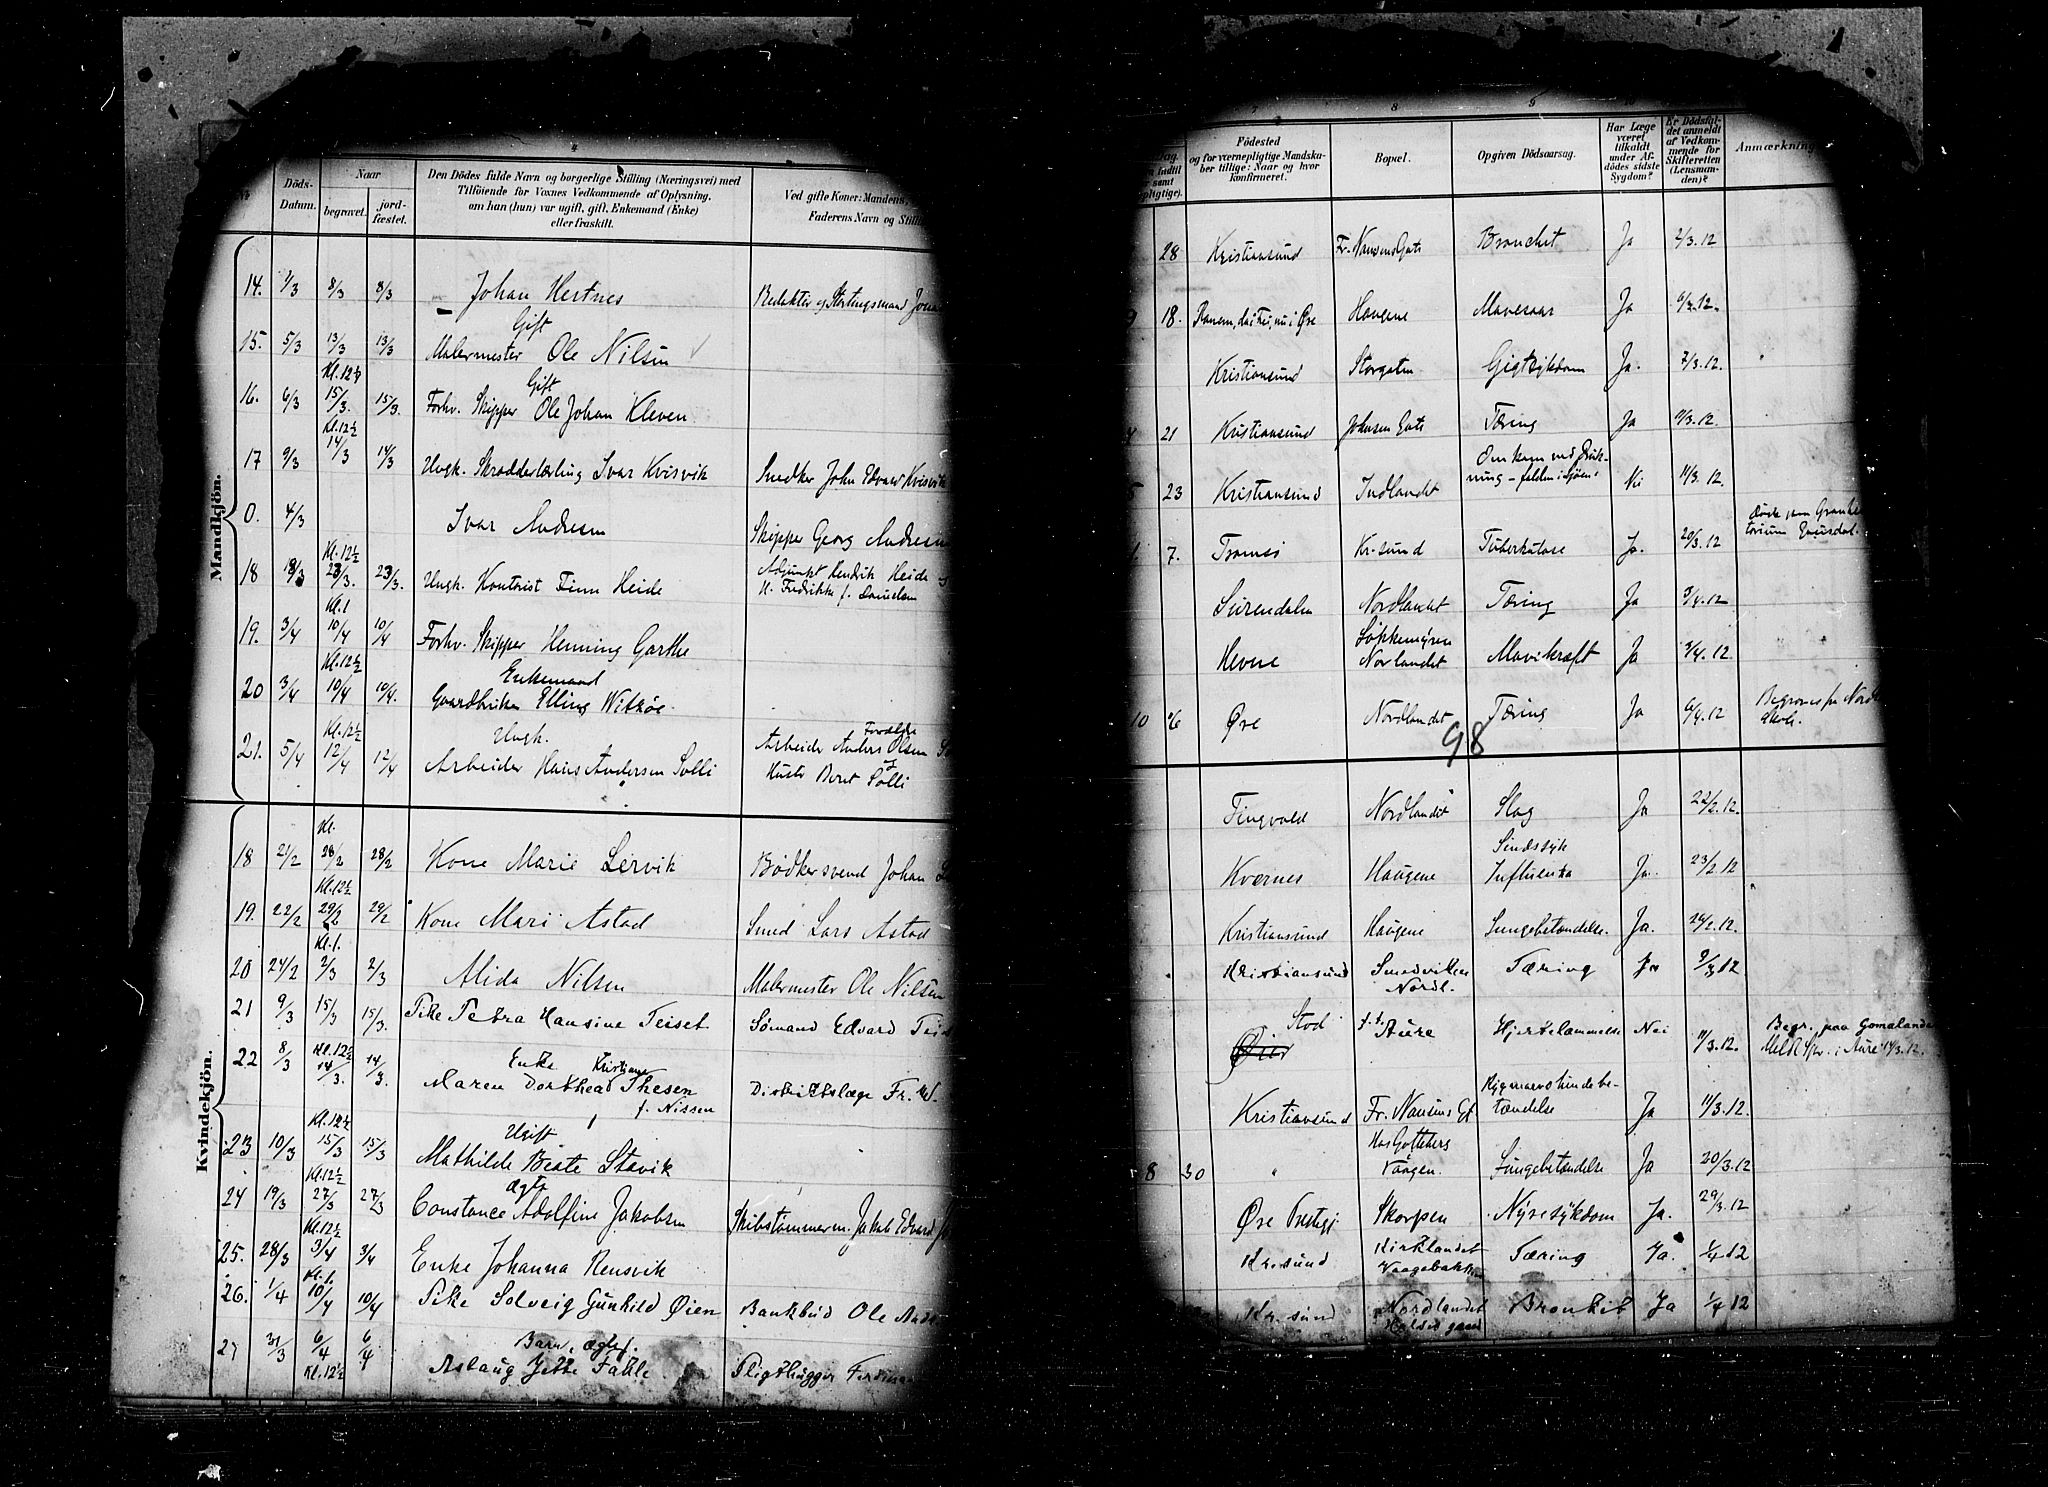 4
No
Döds-
Datum.
Naar
begravet.
jord-
fæstet.
Den Dödes fulde Navn og borgerlige Stilling (Næringsvei) med
Tilföiende for Voxnes Vedkommende af Oplysning,
om han (hun) var ugift, gift, Enkemand (Enke)
eller fraskilt.
Ved gifte Koner: Mandens,
Faderens Navn og Still
Mandkjön.
14. 1/3 8/3 8/3 Johan Hestnes Redaktør og Stortingsmand
Gift
15. 5/3 13/3 13/3 Malermester Ole Nilsen
Kl. 12½ Gift
16. 6/3 15/3. 15/3. Forhv. Skipper Ole Johan Kleven
Kl. 12½
17 9/3 14/3 14/3 Ungk. Skrædderlærling Ivar Kvisvik Snedker John Edvard Kvisvik
0. 4/3 Ivar Andresen Skipper Georg Andresen
Kl. 12½
18 18/3 23/3. 23/3. Ungk. Kontorist Finn Heide Adjunkt Hendrik Heide
H. Fredrikke f. Danielsen
Kl. 1
19. 3/4 10/4 10/4 Forhv. Skipper Henning Garthe
Kl. 12½ Enkemand
20 3/4 10/4 10/4. Gaardbruker Elling Witsøe
Kl. 12½ Ungk. Forældre
21. 5/4 12/4 12/4 Arbeider Hans Andersen Solli Arbeider Anders Olsen
og
Hustr Beret Solli
Kvindekjön.
Kl.
18 21/2 28/2 28/2 Kone Marie Lervik Bødkersvend Johan
Kl. 12½
19. 22/2 29/2 29/2 Kone Marie Astad Smed Lars Astad
Kl. 1.
20 24/2 2/3 2/3 Alida Nilsen Malermester Ole Nilsen
21 9/3 15/3 15/3. Pike Petra Hansine Teiset Sømand Edvard
Kl. 12½ Enke Kristiane
22 8/3 14/3. 14/3. Maren Dorthea Thesen Distriktslæge Fr. W.
f. Nissen
Kl. 12½ Ugift
23 10/3 15/3 15/3 Mathilde Beate Stavik
Kl. 12½ Ægte
24 19/3 27/3 27/3 Constance Adolfine Jakobsen Skibstømmerm. Jakob Edvard
Kl. 12½
25. 28/3 3/4 3/4 Enke Johanna Rensvik
Kl. 1.
26. 1/4 10/4 10/4 Pike Solveig Gunhild Øien Bankbud Ole
Barn, ægtef.
27 31/3 6/4 6/4 Aslaug Jette Fahle Fligthugger
Kl. 12½
7
8
9
10
Födested
og for værnepligtige Mandska-
ber tillige: Naar og hvor
konfirmeret.
Bopæl.
Opgiven Dödsaarsag.
Har Læge
været
tilkaldt
under Af-
dödes sidste
Sygdom?
Er Dödsfal-
det anmeldt
af Vedkom-
mende for
Skifteretten
(Lensman-
den)?
Anmærkning
28 Kristiansund Fr. Nansens Gate Bronchit Ja 2/3. 12
18. Haugene Mavesaar Ja 6/3. 12.
Kristiansund Storgaten Gigtsykdom Ja. 7/3. 12.
21 Kristiansund Johnsen Gate Tæring Ja 11/3. 12.
23 Kristiansund Indlandet Omkom ved Druk-
ning – falden i Sjøen Nei 14/3. 12.
7. Tromsø Kr.sund Tuberkulose Ja. 20/3. 12
Surendalen Nordlandet Tæring Ja 3/4. 12
Hevne Løkkemyren
Norlandet Mavekræft Ja 3/4. 12
10 26 Øre Nordlandet Tæring Ja 6/4. 12 Begraves på
98
Tingvold Nordlandet Slag Ja 22/2. 12.
Kvernes Haugene Sindssyk
Influenka Ja. 23/2 12
Kristiansund Haugene Lungebetændelse. Ja. 26/2. 12.
Kristiansund Smedviken
Nordl. Tæring Ja 2/3 12
Stod f. t. Aure Hjertelammelse Nei 11/3. 12. Begr. paa Gomalandet
Kristiansund Fr. Nansens Gt. Rygmarvshindebe-
tændelse Ja 11/3. 12.
8 30 " Vaagen. Lungebetændelse Ja 20/3. 12
Øre Prestegj. Skorpen Nyresykdom Ja. 29/3. 12
Kr.sund Kirklandet
Vaagebakken Tæring Ja. 1/4 12
Kr. sund Nordlandet Bronkit Ja 1/4 12